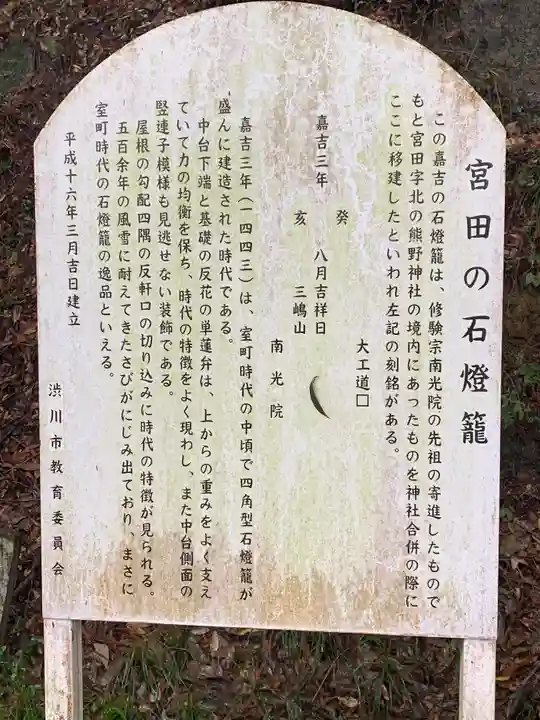 宮田の石燈籠
この嘉吉の石燈籠は、修験宗南光院の先祖の寄進したもので
もと宮田字北の熊野神社の境内にあったものを神社合併の際に
ここに移建したといわれ左記の刻銘がある。
大工道□
癸
嘉吉三年　八月吉祥日
亥
三嶋山
南光院
嘉吉三年（一四四三）は、室町時代の中頃で四角型石燈籠が
盛んに建造された時代である。
中台下端と基礎の反花の単蓮弁は、上からの重みをよく支え
ていて力の均衡を保ち、時代の特徴をよく現わし、また中台側面の
竪連子模様も見逃せない装飾である。
屋根の勾配四隅の反軒口の切り込みに時代の特徴が見られる。
五百余年の風雪に耐えてきたさびがにじみ出ており、まさに
室町時代の石燈籠の逸品といえる。
平成十六年三月吉日建立
渋川市教育委員会